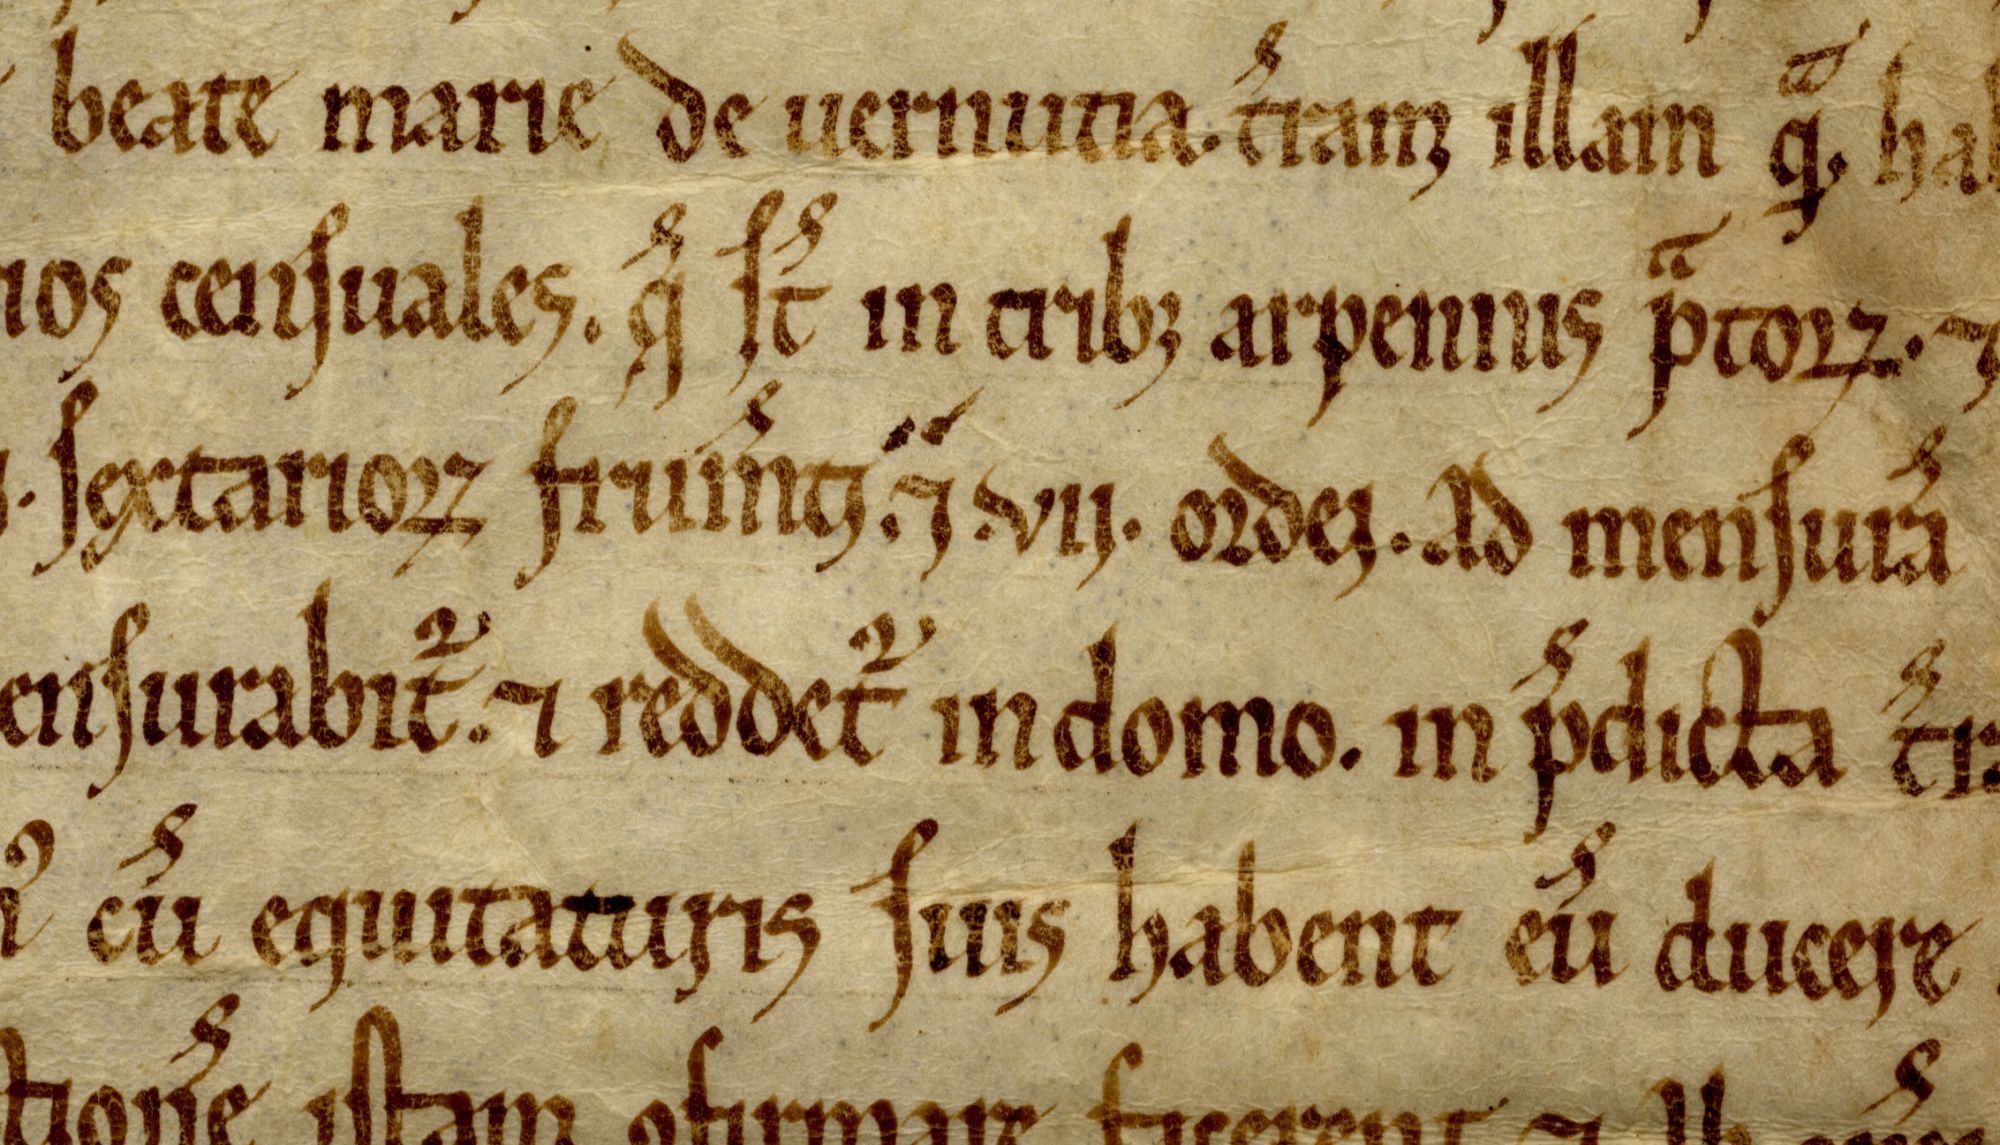 beate marie de uernucia. t̄ram illam q̄
censuales. q̄ st̄ in tribꝫ arpennis p̄toꝝ. ⁊
sextarioꝝ frum̄ti. ⁊ .vii. ordei. Ad mensurā
ensurabit᷑. ⁊ reddet᷑ in domo. in p̄dicta
cū equitaturis suis habent eū ducere
istam 9firmare fecerent ⁊